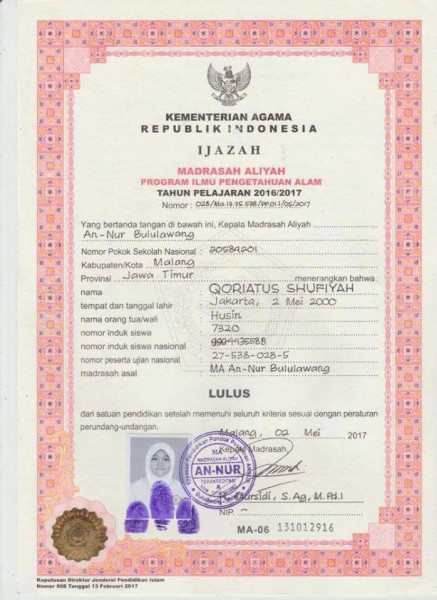 KEMENTERIAN AGAMA
REPUBLIK INDONESIA
IJAZAH
MADRASAH ALIYAH
PROGRAM ILMU PENGETAHUAN ALAM
TAHUN PELAJARAN 2016/2017
Nomor : 028/Ma.13.35.538/PP.01.1/05/2017
Yang bertanda tangan di bawah ini, Kepala Madrasah Aliyah
An-Nur Bululawang
Nomor Pokok Sekolah Nasional : 20584201
Kabupaten/Kota : Malang
Provinsi : Jawa Timur menerangkan bahwa :
nama : QORIATUS SHUFIYAH
tempat dan tanggal lahir : Jakarta, 2 Mei 2000
nama orang tua/wali : Husin
nomor induk siswa : 7320
nomor induk siswa nasional :
nomor peserta ujian nasional : 27-538-028-5
madrasah asal : MA An-Nur Bululawang
LULUS
dari satuan pendidikan setelah memenuhi seluruh kriteria sesuai dengan peraturan
perundang-undangan.
Malang, 02 Mei 2017
Kepala Madrasah,
MA
MADRASAH ALIYAH
AN-NUR
TERAKREDITASI
A
Mursidi, S.Ag, M.Pd.I
NIP. -
MA-06 131012916
Keputusan Direktur Jenderal Pendidikan Islam
Nomor 906 Tanggal 13 Februari 2017